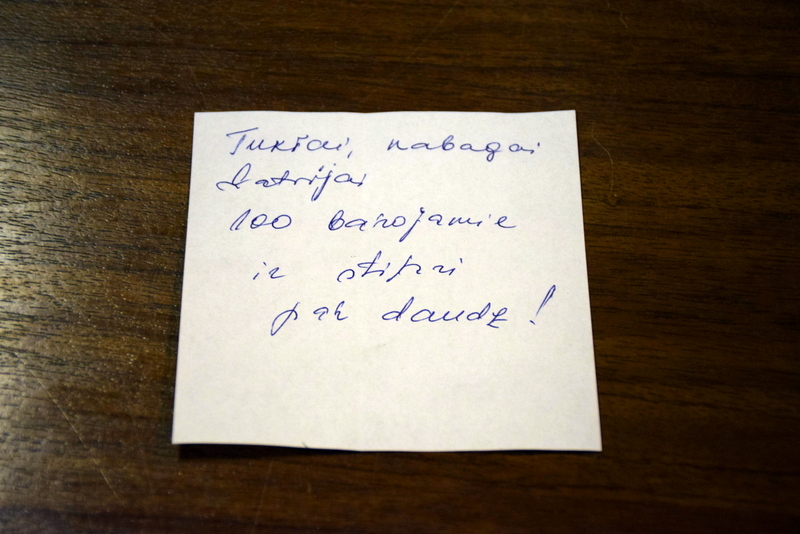 Tukšai, nabagai
Latvijai
100 barojamie
ir stipri
par daudz!